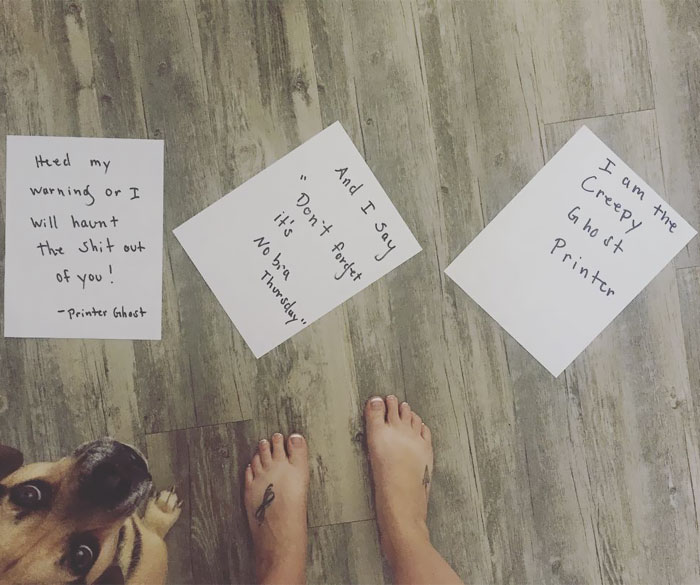 Heed my
warning or I
will haunt
the shit out
of you!
-Printer Ghost
And I say
"Don't forget
it's
No bra
Thursday"
I am the
Creepy
Ghost
Printer